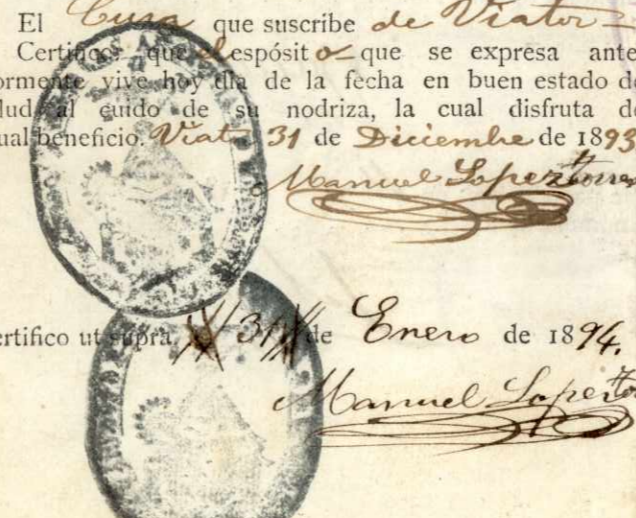 El Cura que suscribe de Viator =
Certifico: que el espósito que se expresa ante
ormente vive hoy día de la fecha en buen estado de
lud al cuido de su nodriza, la cual disfruta de
ual beneficio. Viator 31 de Diciembre de 1893
Manuel Lopez Torres
ertifico ut supra 31 de Enero de 1894.
Manuel Lopez